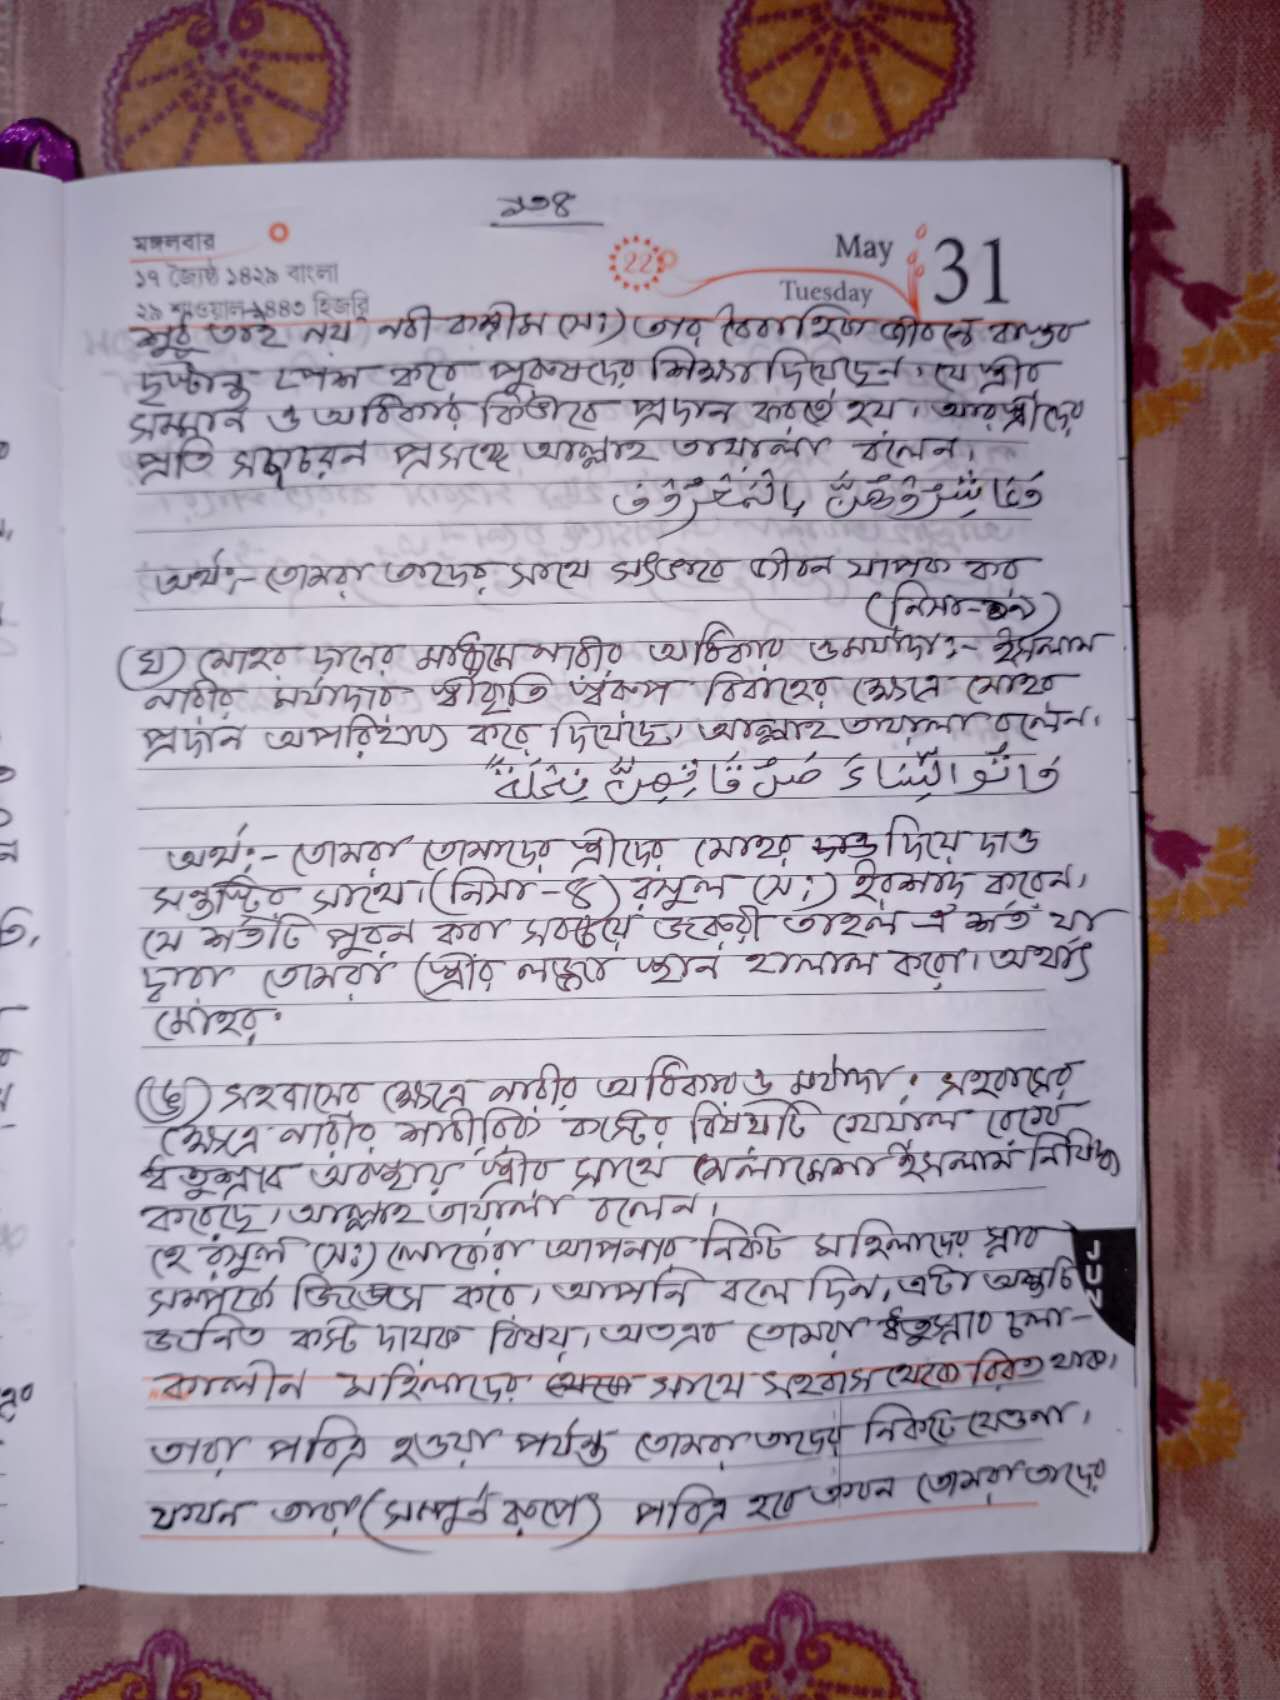 ১৩৪
মঙ্গলবার
22
May 31
১৭ জ্যৈষ্ঠ ১৪২৯ বাংলা
Tuesday
২৯ শাওয়াল ১৪৪৩ হিজরি
শুধু তাই নয় নবী করীম (সঃ) তার বৈবাহিক জীবনে বাস্তব
দৃষ্টান্ত পেশ করে পুরুষদের শিক্ষা দিয়েছেন। যে স্ত্রীর
সম্মান ও অধিকার কিভাবে প্রদান করতে হয়। আর স্ত্রীদের
প্রতি সদাচরন প্রসঙ্গে আল্লাহ তায়ালা বলেন।
অর্থ:- তোমরা তাদের সাথে সৎভাবে জীবন যাপন কর
(নিসা-১৯)
(ঘ) মোহর দানের মাধ্যিমে নারীর অধিকার ও মর্যাদা:- ইসলাম
নারীর মর্যাদার স্বীকৃতি স্বরুপ বিবাহের ক্ষেত্রে মোহর
প্রদান অপরিহার্য করে দিয়েছে। আল্লাহ তায়ালা বলেন।
অর্থ:- তোমরা তোমাদের স্ত্রীদের মোহর দিয়ে দাও
সন্তুষ্টির সাথে। (নিসা-৪) রসূল (সঃ) ইরশাদ করেন।
যে শর্তটি পুরন করা সবচেয়ে জরুরী তাহল ঐ শর্ত যা
দ্বারা তোমরা স্ত্রীর লজ্জা স্থান হালাল করো। অর্থাৎ
মোহর।
(ঙ) সহবাসের ক্ষেত্রে নারীর অধিকার ও মর্যাদা: সহবাসের
ক্ষেত্রে নারীর শারীরিক কস্টের বিষয়টি খেয়াল রেখে
ঋতুশ্রাব অবস্থায় স্ত্রীর সাথে মেলামেশা ইসলাম নিষিদ্ধ
করেছে। আল্লাহ তায়ালা বলেন।
হে রসূল (সঃ) লোকেরা আপনার নিকট মহিলাদের স্রাব
সম্পর্কে জিজ্ঞেস করে। আপনি বলে দিন, এটা অশুচি
জনিত কস্ট দায়ক বিষয়। অতএব তোমরা ঋতুস্রাব চলা-
কালীন মহিলাদের সাথে সহবাস থেকে বিরত থাক।
তারা পবিত্র হওয়া পর্যন্ত তোমরা তাদের নিকটে যেওনা।
যখন তারা (সম্পূর্ন রুপে) পবিত্র হবে তখন তোমরা তাদের
JUN